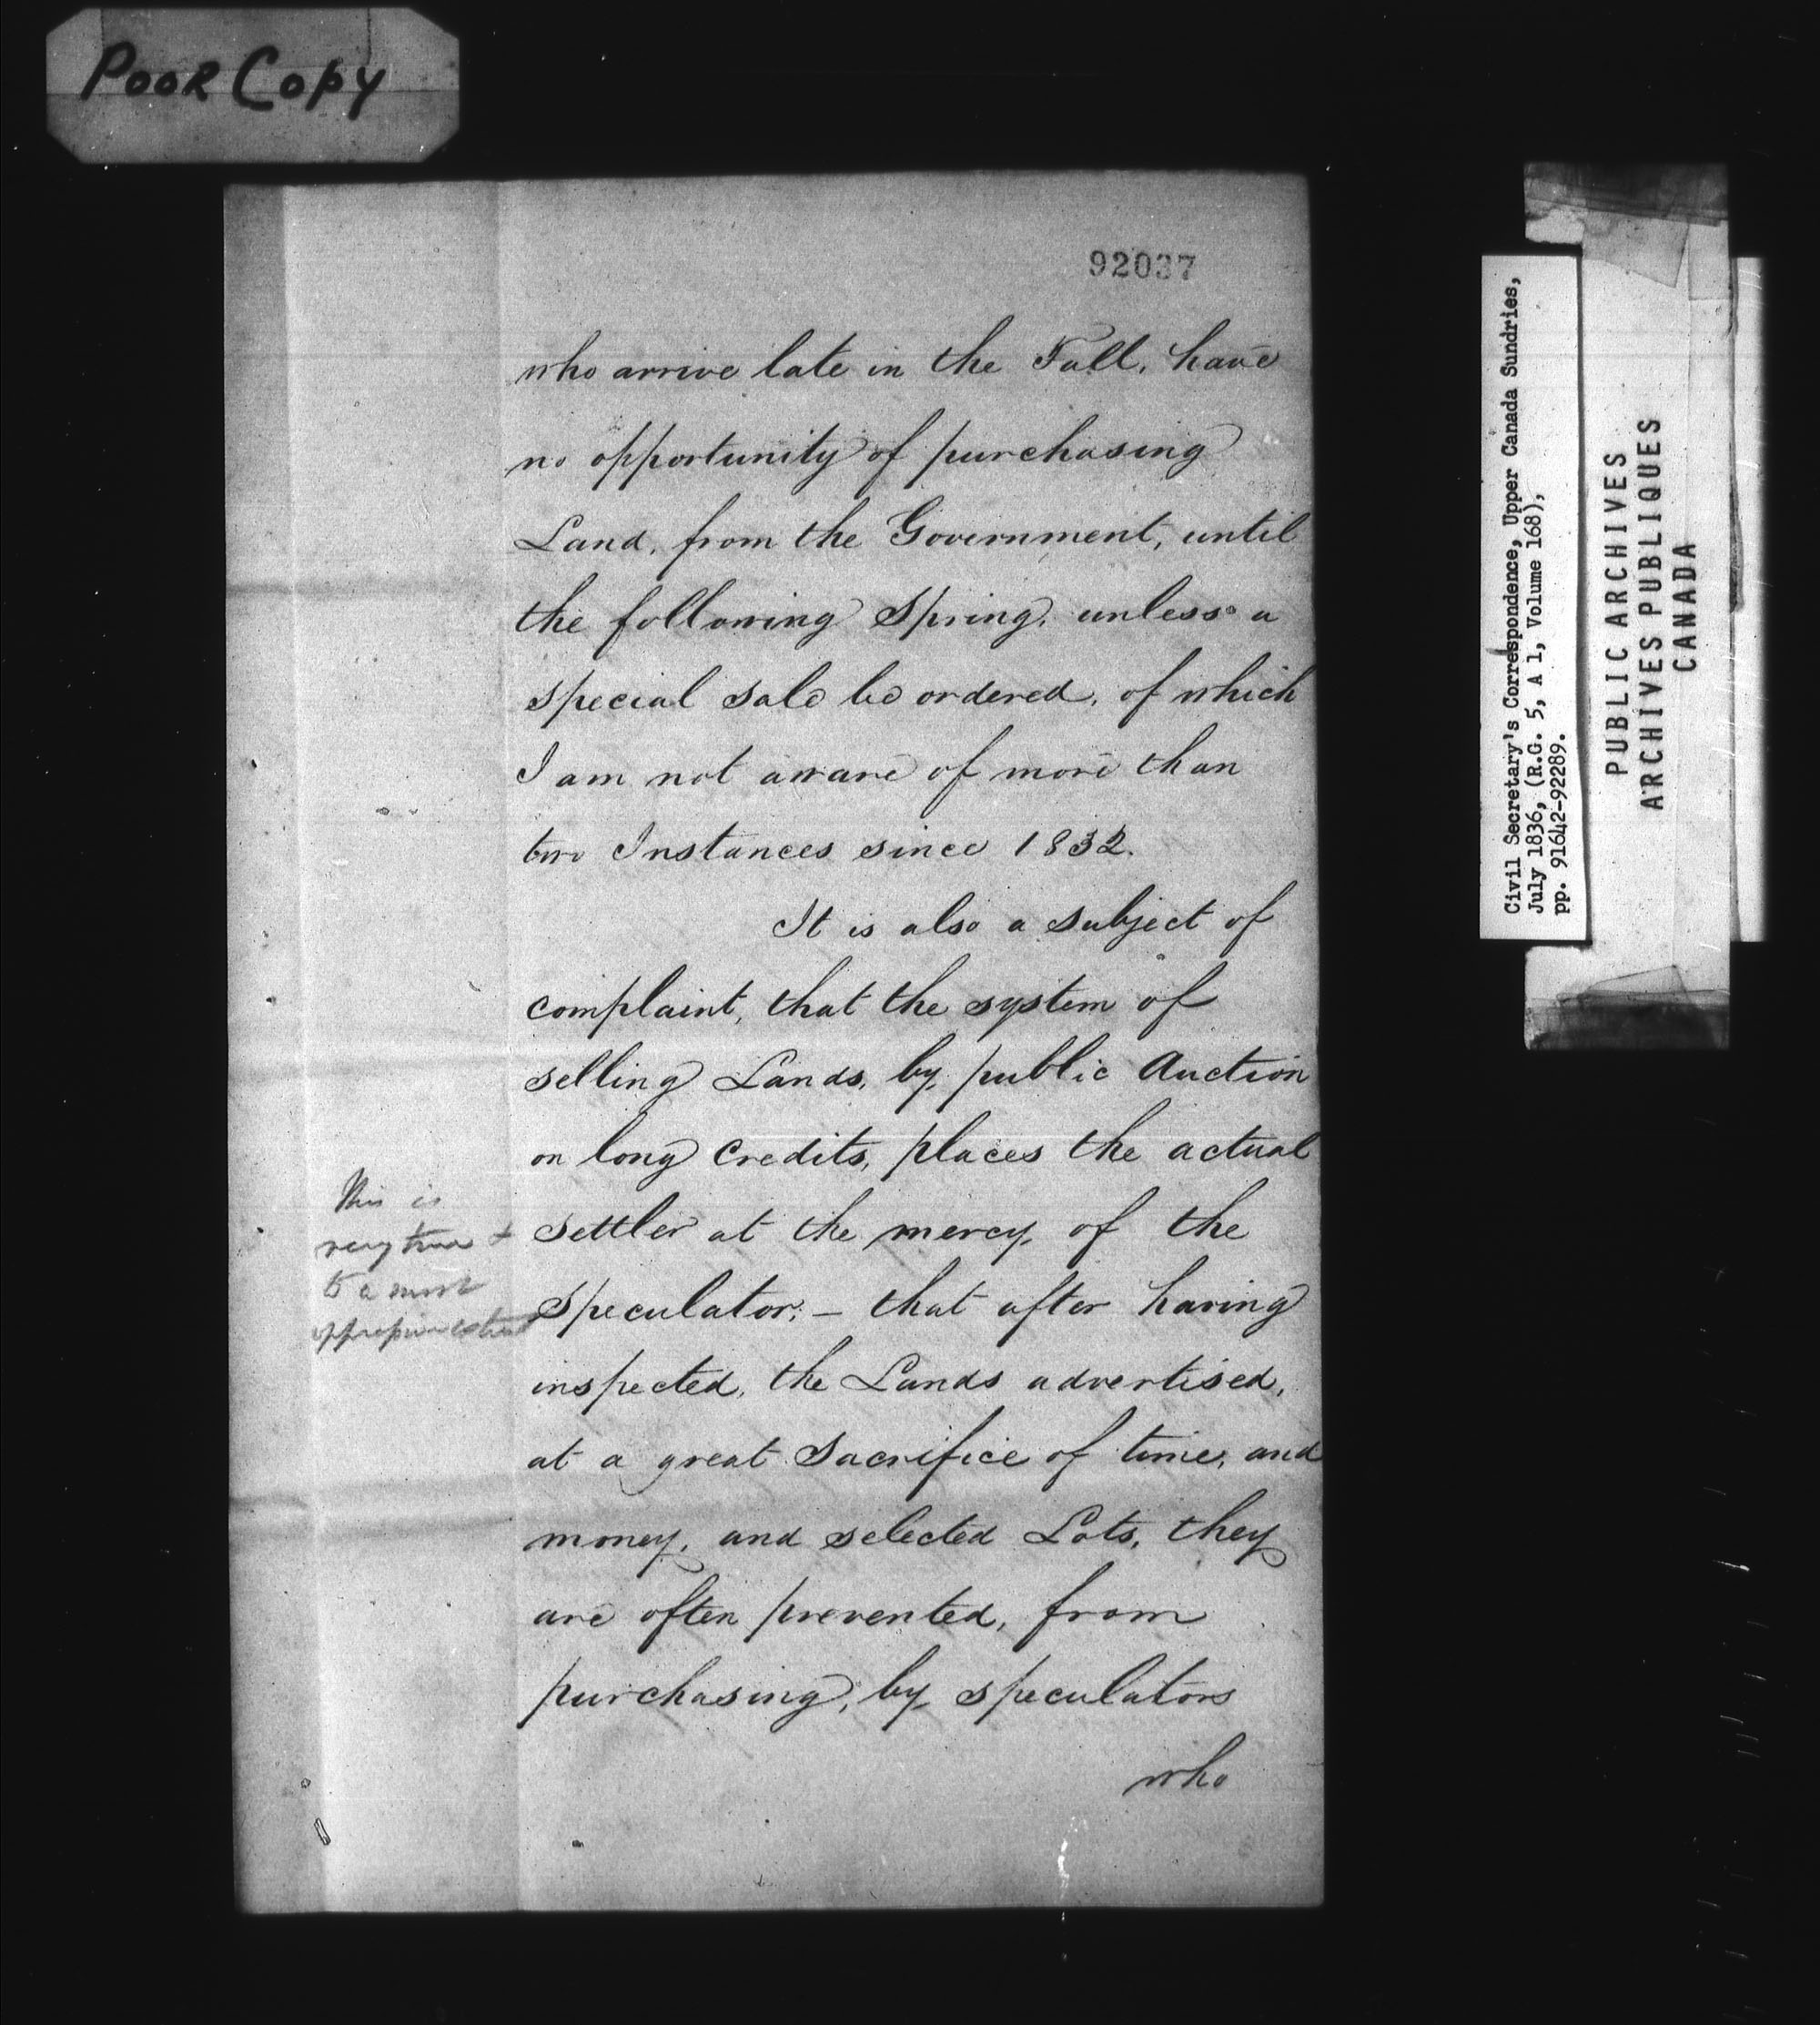 Poor Copy
92037
who arrive late in the Fall, have
no opportunity of purchasing
Land, from the Government, until
the following Spring, unless a
special sale be ordered, of which
I am not aware of more than
two Instances since 1832.
It is also a subject of
complaint, that the system of
selling Lands, by public Auction
on long Credits, places the actual
settler at the mercy of the
Speculator; – that after having
inspected, the Lands advertised,
at a great Sacrifice of time, and
money, and selected Lots, they
are often prevented, from
purchasing, by speculators
who
This is
very true &
to a most
extent
Civil Secretary's Correspondence, Upper Canada Sundries,
July 1836, (R.G. 5, A 1, Volume 168),
pp. 91642-92289.
PUBLIC ARCHIVES
ARCHIVES PUBLIQUES
CANADA